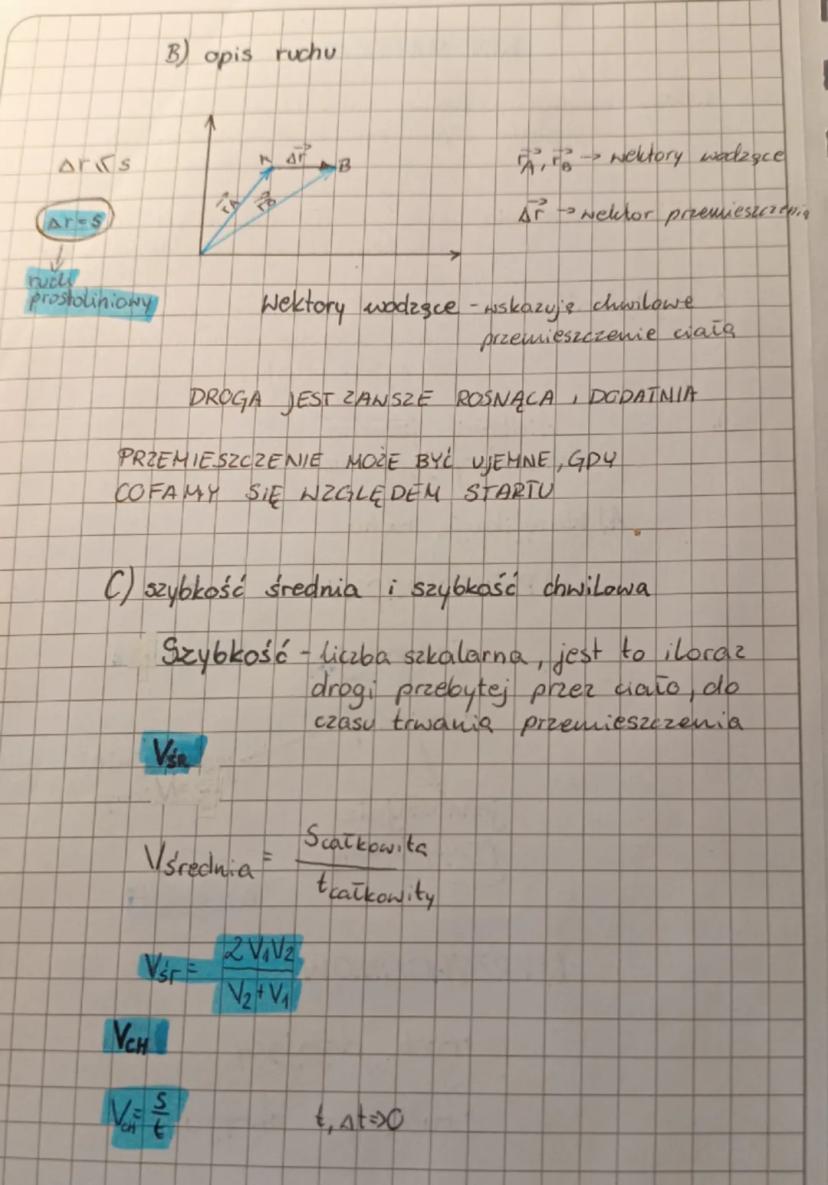 B) opis ruchu
Δr ≤ s
A Δr⃗ B
r⃗A r⃗B
r⃗A, r⃗B → wektory wodzące
Δr = s
Δr⃗ → wektor przemieszczenia
ruch
prostoliniowy
Wektory wodzące - wskazuję chwilowe
przemieszczenie ciała
DROGA JEST ZAWSZE ROSNĄCA, DODATNIA
PRZEMIESZCZENIE MOŻE BYĆ UJEMNE, GDY
COFAMY SIĘ WZGLĘDEM STARTU
C) szybkość średnia i szybkość chwilowa
Szybkość - liczba szkalarna, jest to iloraz
drogi przebytej przez ciało, do
czasu trwania przemieszczenia
VŚR
Vśrednia = Scałkowita / tcałkowity
Vśr = 2V₁V₂ / V₂+V₁
VCH
VCH = s/t t, Δt⇒0